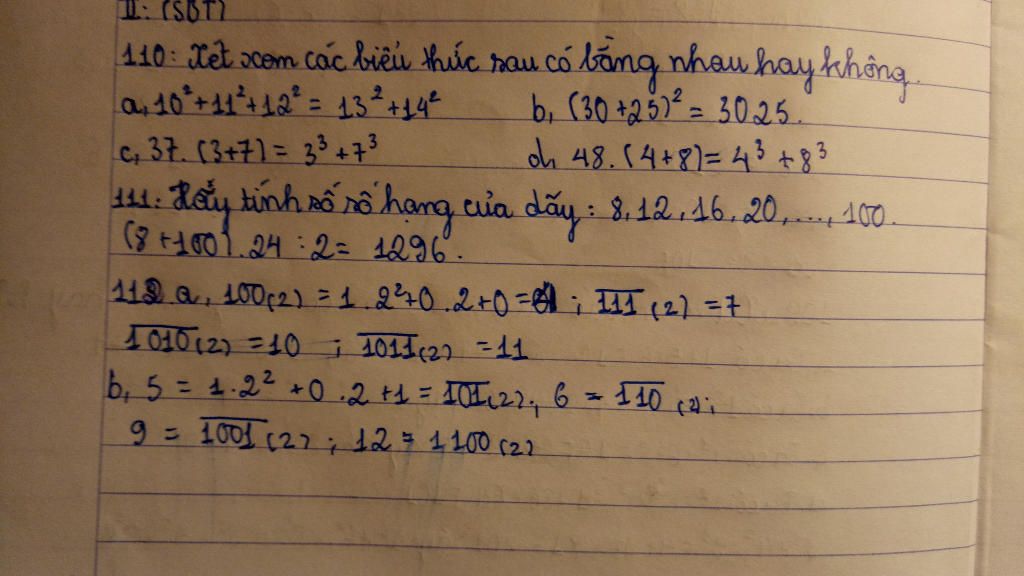 II: (SBT)
110: Xét xem các biểu thức sau có bằng nhau hay không.
a, 10² + 11² + 12² = 13² + 14² b, (30 + 25)² = 3025.
c, 37. (3+7) = 3³ + 7³ d, 48. (4+8) = 4³ + 8³
111: Hãy tính số số hạng của dãy: 8, 12, 16, 20, ..., 100.
(8 + 100). 24 : 2 = 1296.
112 a, 100(2) = 1. 2² + 0. 2 + 0 = ; 1̅1̅1̅ (2) = 7
1̅0̅1̅0̅(2) = 10 ; 1̅0̅1̅1̅(2) = 11
b, 5 = 1. 2² + 0. 2 + 1 = 1̅0̅1̅(2); 6 = 1̅1̅0̅ (2);
9 = 1̅0̅0̅1̅(2) ; 12 = 1100(2)